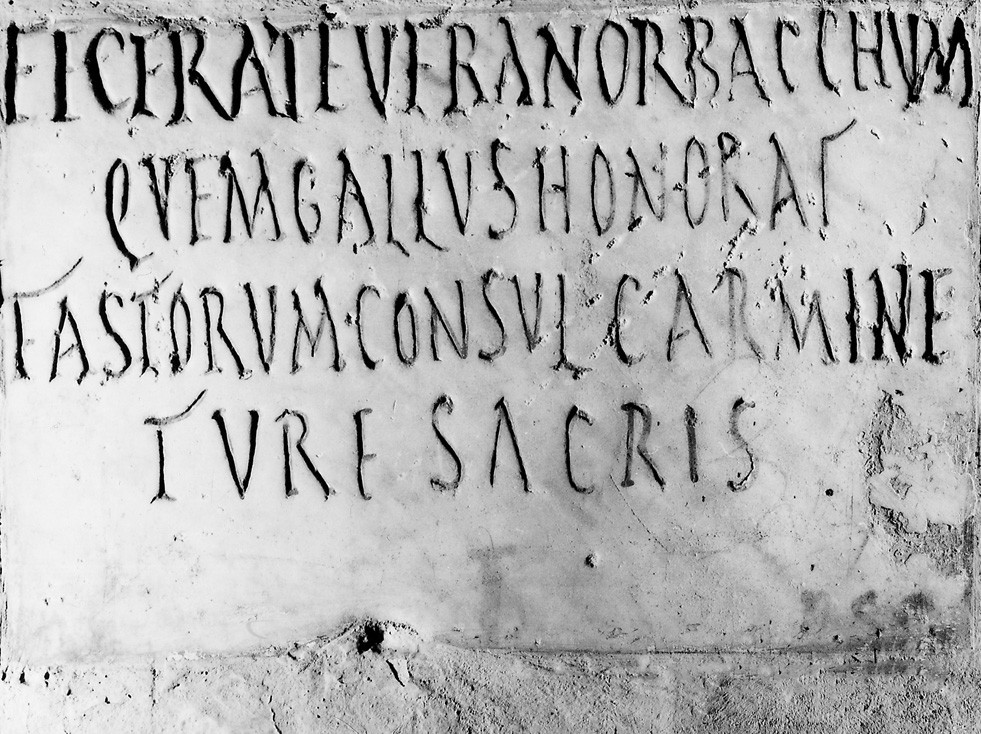 FECERAT EVFRANOR BACCHVM
QVEM GALLVS HONORAT
FASTORVM CONSVL CARMINE
TVRE SACRIS